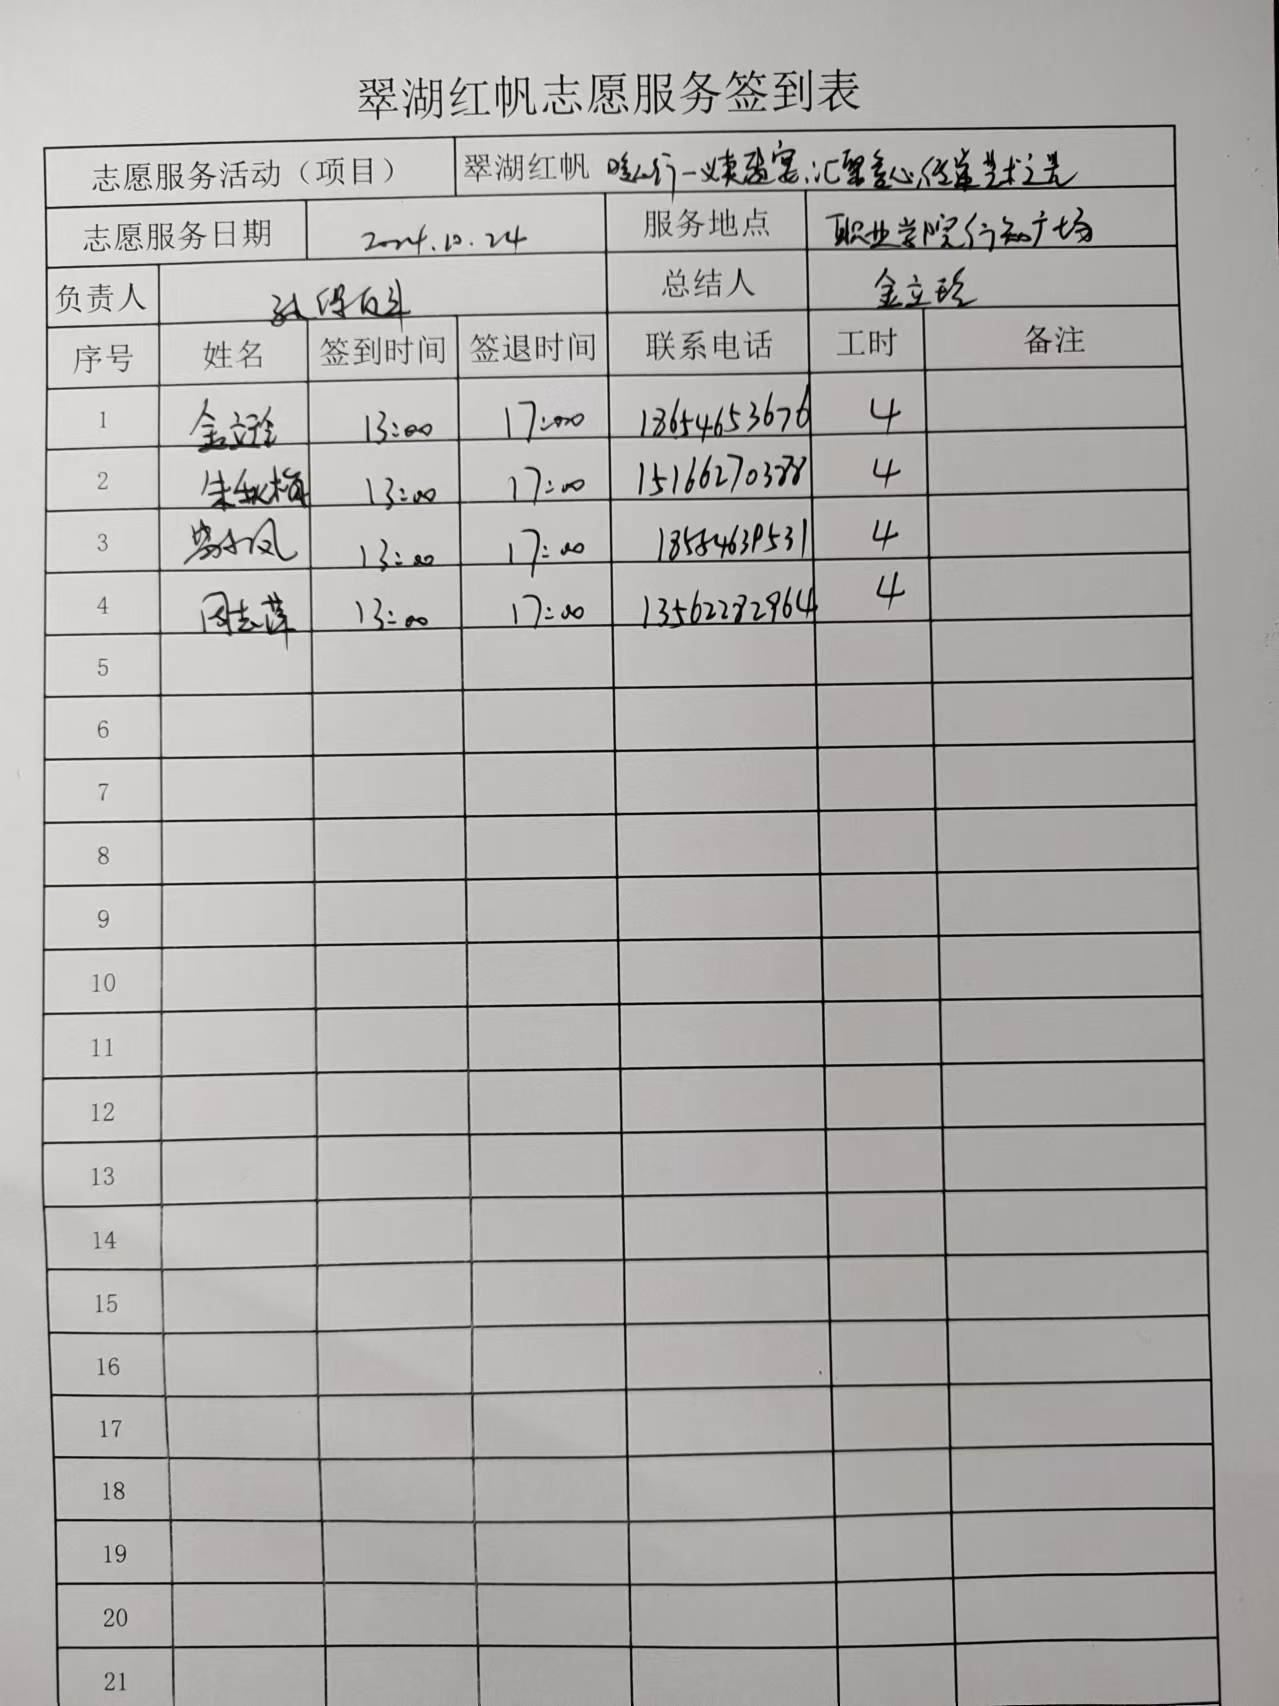 翠湖红帆志愿服务签到表
志愿服务活动（项目） 翠湖红帆 义卖 汇聚爱心 艺术之光
志愿服务日期 2024.10.24 服务地点 职业学院行知广场
负责人 总结人 金立玲
序号 姓名 签到时间 签退时间 联系电话 工时 备注
1 金立玲 13:00 17:00 18654653676 4
2 朱秋梅 13:00 17:00 15166270388 4
3 13:00 17:00 18554639531 4
4 周志萍 13:00 17:00 13562282964 4
5
6
7
8
9
10
11
12
13
14
15
16
17
18
19
20
21